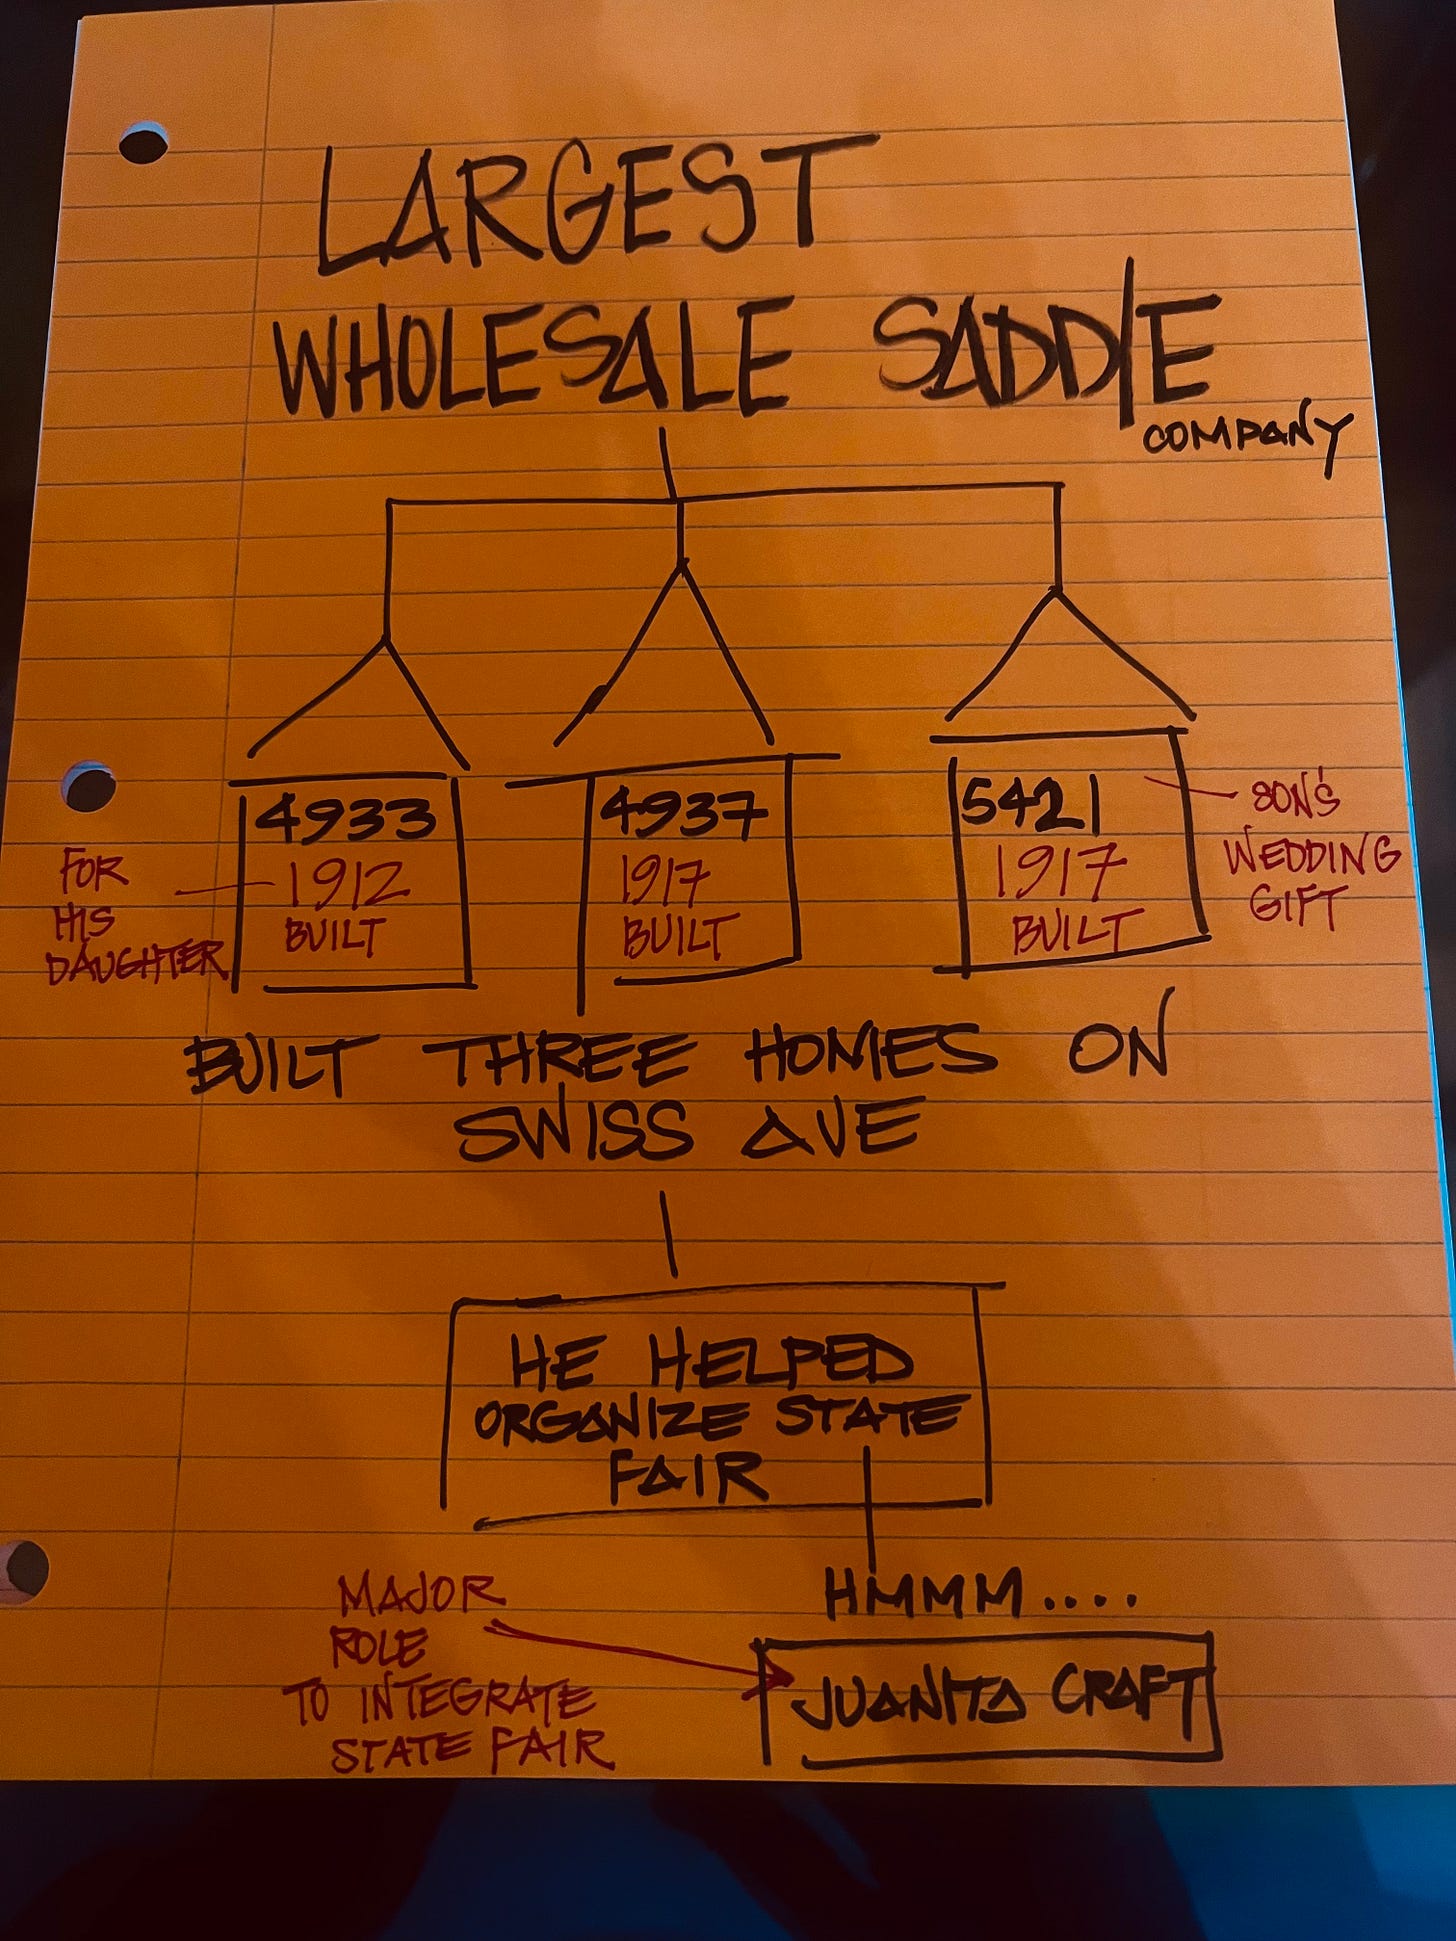 LARGEST
WHOLESALE SADDLE
COMPANY
4933
1912
BUILT
FOR
HIS
DAUGHTER
4937
1917
BUILT
5421
1917
BUILT
SON'S
WEDDING
GIFT
BUILT THREE HOMES ON
SWISS AVE
HE HELPED
ORGANIZE STATE
FAIR
HMMM....
MAJOR
ROLE
TO INTEGRATE
STATE FAIR
JUANITA CRAFT